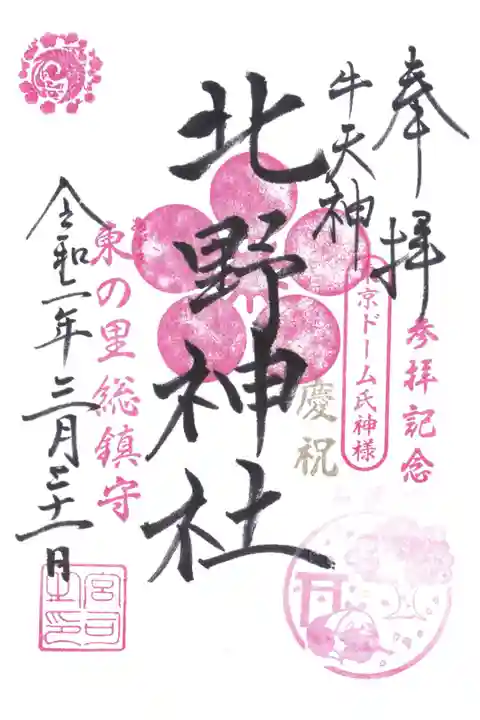 奉拝
参拝記念
東京ドーム氏神様
牛天神
慶祝
北野神社
東の里総鎮守
令和二年三月二十一日
宮司之印